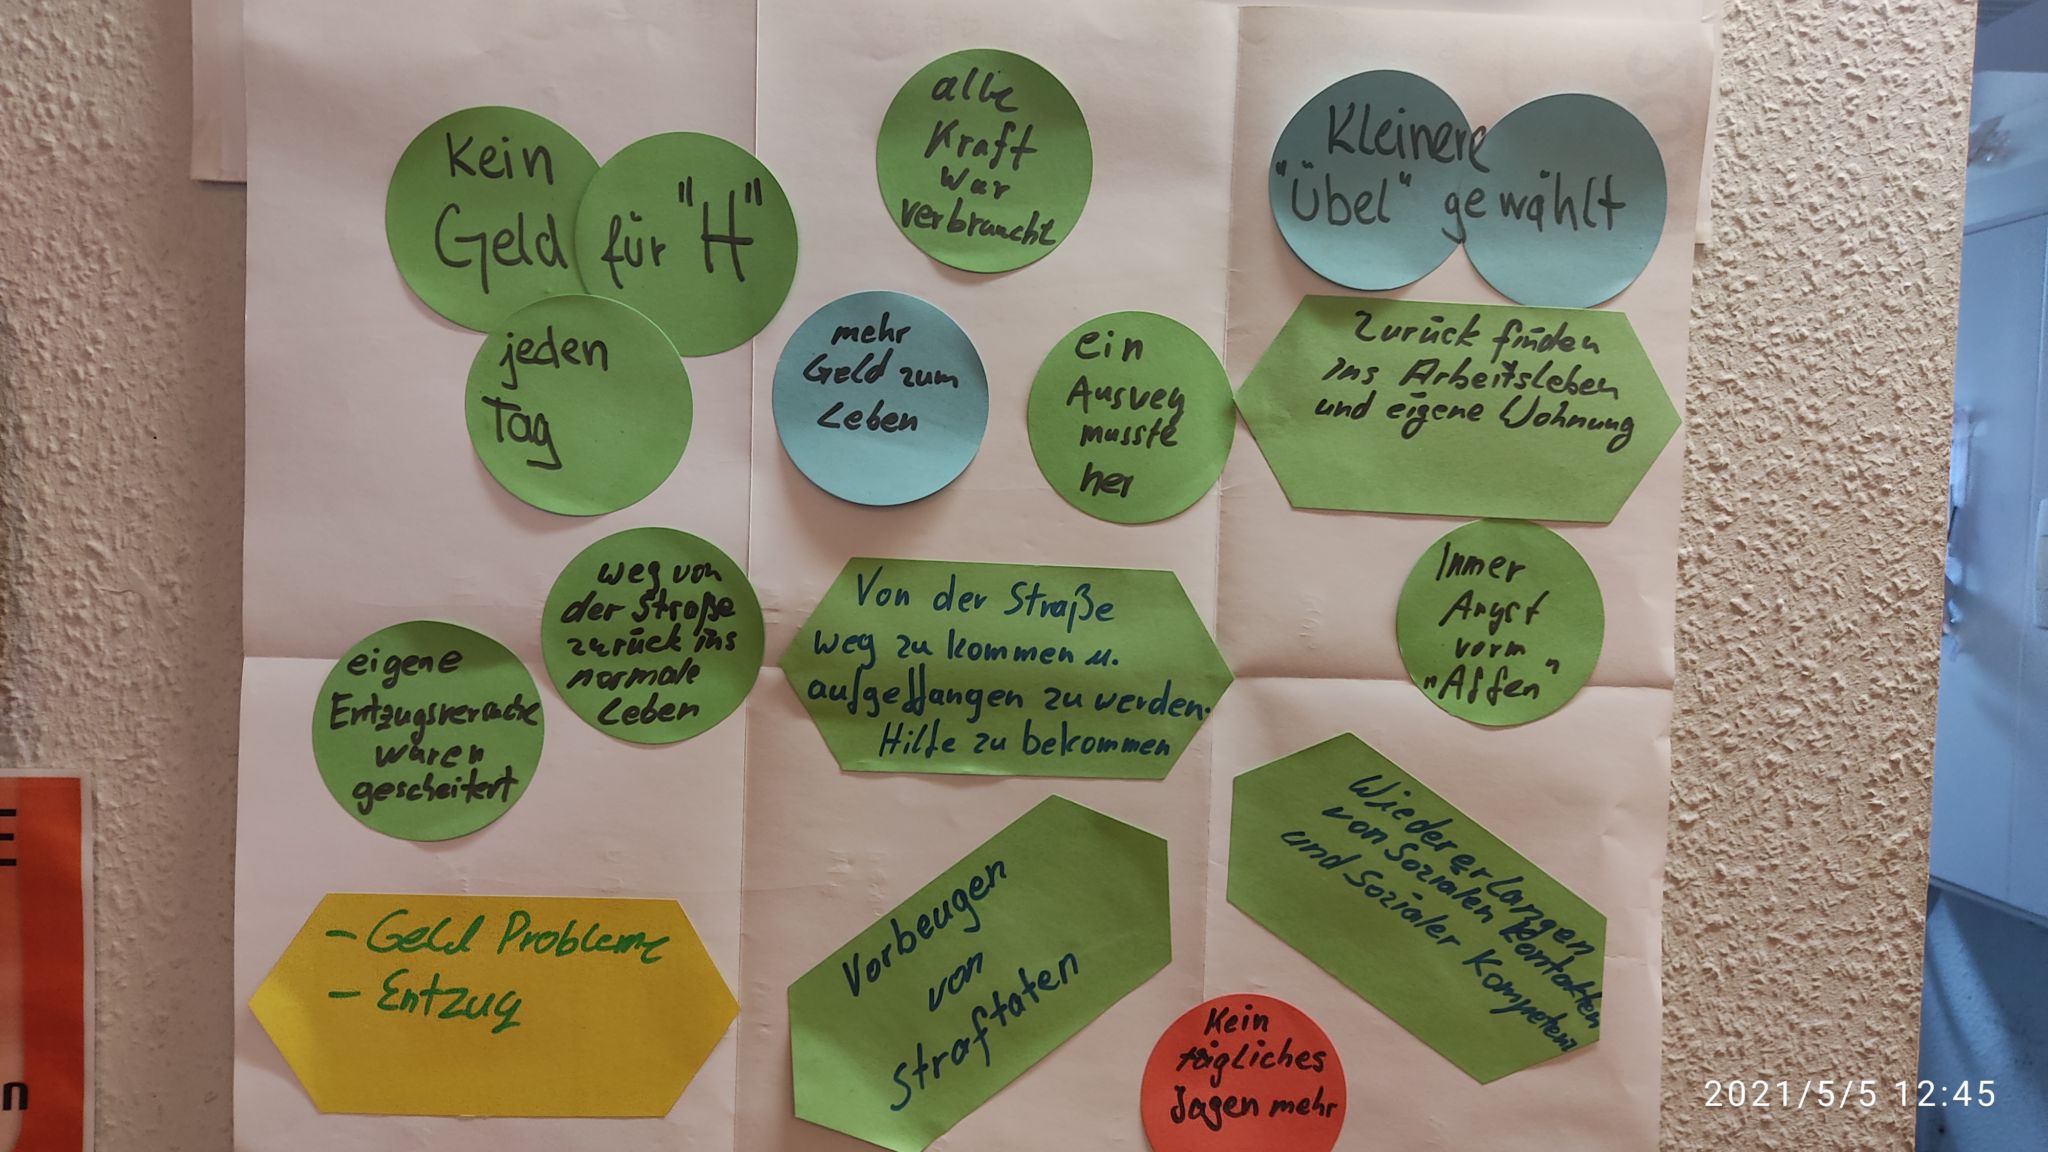 Kein
Geld für "H"
jeden
Tag
alle
Kraft
war
verbraucht
Kleinere
"Übel" gewählt
mehr
Geld zum
Leben
ein
Ausweg
musste
her
Zurück finden
ins Arbeitsleben
und eigene Wohnung
weg von
der Straße
zurück ins
normale
Leben
Von der Straße
weg zu kommen u.
aufgeffangen zu werden.
Hilfe zu bekommen
Immer
Angst
vorm
"Affen"
eigene
Entzugsversuche
waren
gescheitert
- Geld Probleme
- Entzug
Vorbeugen
von
Straftaten
Wiedererlangen
von Sozialen Kontakten
und Sozialer Kompetenz
Kein
tägliches
Jagen mehr
n
2021/5/5 12:45